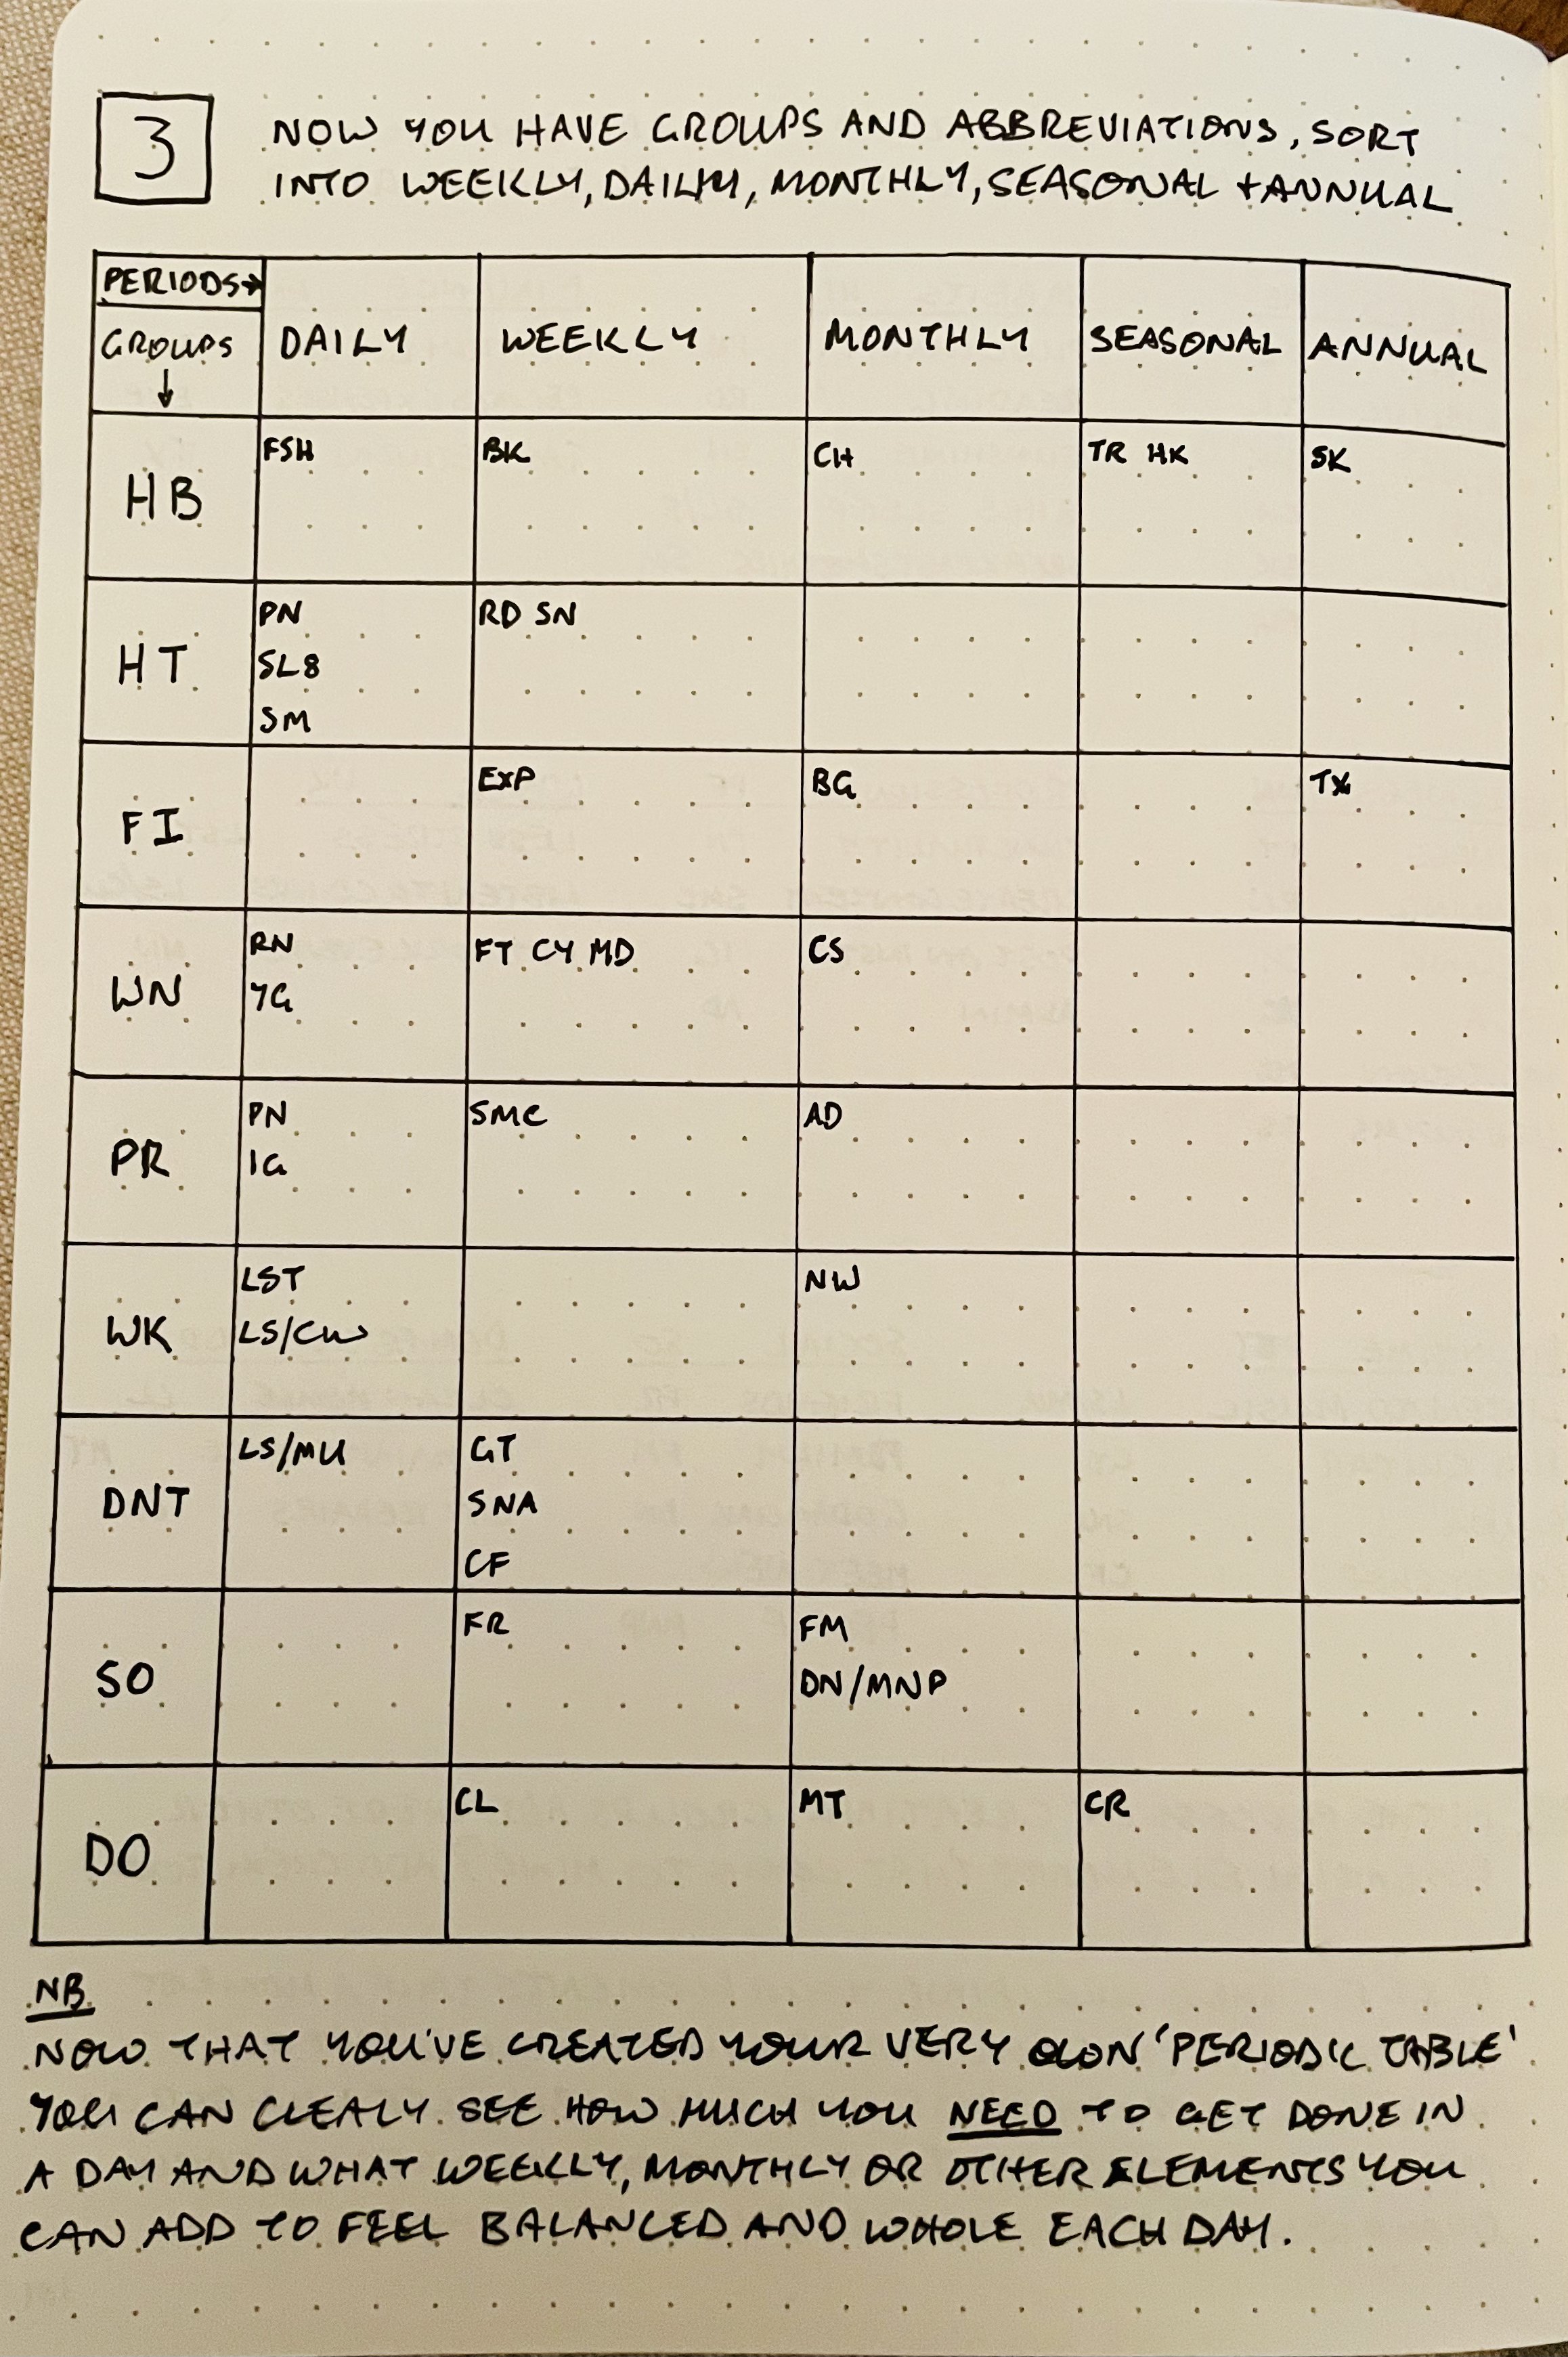 3
NOW YOU HAVE GROUPS AND ABBREVIATIONS, SORT
INTO WEEKLY, DAILY, MONTHLY, SEASONAL + ANNUAL
PERIODS→
GROUPS ↓ DAILY WEEKLY MONTHLY SEASONAL ANNUAL
HB FSH BK CH TR HK SK
HT PN RD SN
SL8
SM
FI EXP BG TX
WN RN FT CY MD CS
YG
PR PN SMC AD
IG
WK LST NW
LS/CW
DNT LS/MU GT
SNA
CF
SO FR FM
DN/MNP
DO CL MT CR
NB
NOW THAT YOU'VE CREATED YOUR VERY OWN 'PERIODIC TABLE'
YOU CAN CLEALY SEE HOW MUCH YOU NEED TO GET DONE IN
A DAY AND WHAT WEEKLY, MONTHLY OR OTHER ELEMENTS YOU
CAN ADD TO FEEL BALANCED AND WHOLE EACH DAY.